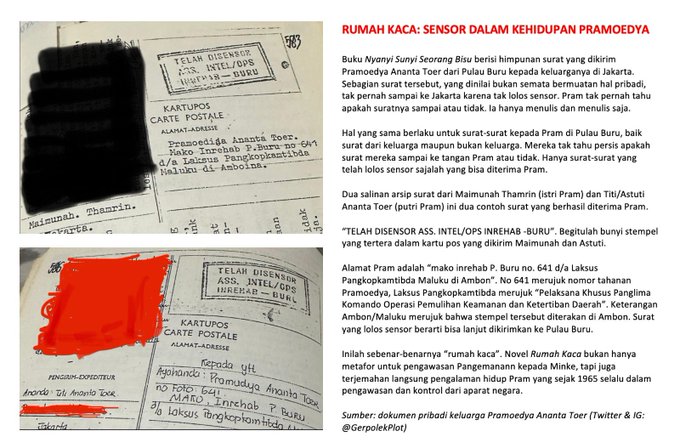 583
TELAH DISENSOR
ASS. INTEL/OPS
INREHAB - BURU
KARTUPOS
CARTE POSTALE
ALAMAT-ADRESSE
Pramoedija Ananta Toer.
Mako Inrehab P.Buru no 641
d/a Laksus Pangkopkamtibda
Maluku di Amboina.
Maimunah. Thamrin.
Jakarta.
TELAH DISENSOR
ASS. INTEL/OPS
INREHAB - BURU
KARTUPOS
CARTE POSTALE
ALAMAT-ADRESSE
PENGIRIM-EXPEDITEUR
Ananda: Titi Ananta Toer
Jakarta
Kepada yth
Ayahanda: Pramudya Ananta Toer
no FOTO: 641
MAKO, Inrehab P BURU
d/a Laksus Pangkopkamtibda
RUMAH KACA: SENSOR DALAM KEHIDUPAN PRAMOEDYA
Buku Nyanyi Sunyi Seorang Bisu berisi himpunan surat yang dikirim
Pramoedya Ananta Toer dari Pulau Buru kepada keluarganya di Jakarta.
Sebagian surat tersebut, yang dinilai bukan semata bermuatan hal pribadi,
tak pernah sampai ke Jakarta karena tak lolos sensor. Pram tak pernah tahu
apakah suratnya sampai atau tidak. Ia hanya menulis dan menulis saja.
Hal yang sama berlaku untuk surat-surat kepada Pram di Pulau Buru, baik
surat dari keluarga maupun bukan keluarga. Mereka tak tahu persis apakah
surat mereka sampai ke tangan Pram atau tidak. Hanya surat-surat yang
telah lolos sensor sajalah yang bisa diterima Pram.
Dua salinan arsip surat dari Maimunah Thamrin (istri Pram) dan Titi/Astuti
Ananta Toer (putri Pram) ini dua contoh surat yang berhasil diterima Pram.
“TELAH DISENSOR ASS. INTEL/OPS INREHAB -BURU”. Begitulah bunyi stempel
yang tertera dalam kartu pos yang dikirim Maimunah dan Astuti.
Alamat Pram adalah “mako inrehab P. Buru no. 641 d/a Laksus
Pangkopkamtibda Maluku di Ambon”. No 641 merujuk nomor tahanan
Pramoedya, Laksus Pangkopkamtibda merujuk “Pelaksana Khusus Panglima
Komando Operasi Pemulihan Keamanan dan Ketertiban Daerah”. Keterangan
Ambon/Maluku merujuk bahwa stempel tersebut diterakan di Ambon. Surat
yang lolos sensor berarti bisa lanjut dikirimkan ke Pulau Buru.
Inilah sebenar-benarnya “rumah kaca”. Novel Rumah Kaca bukan hanya
metafor untuk pengawasan Pangemanann kepada Minke, tapi juga
terjemahan langsung pengalaman hidup Pram yang sejak 1965 selalu dalam
pengawasan dan kontrol dari aparat negara.
Sumber: dokumen pribadi keluarga Pramoedya Ananta Toer (Twitter & IG:
@GerpolekPlot)